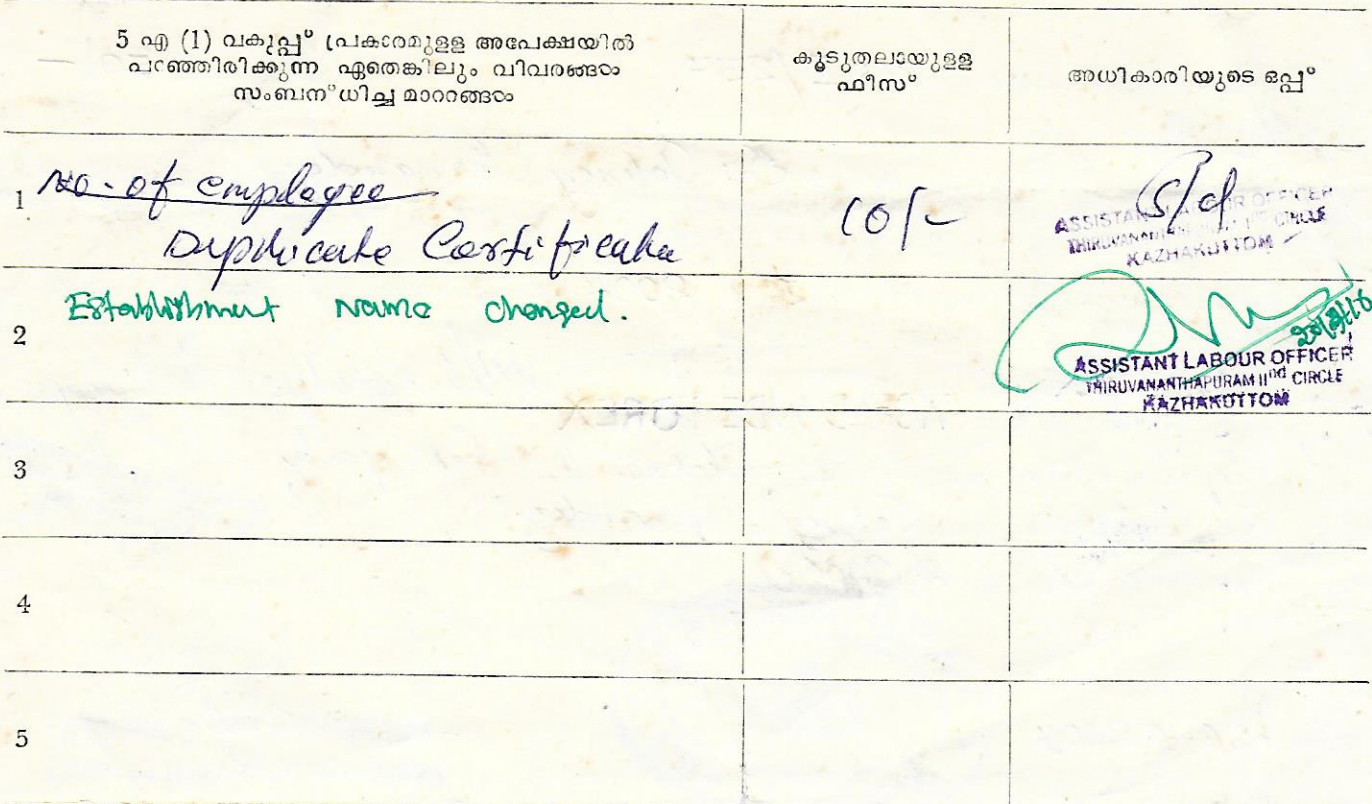 5 എ (1) വകുപ്പ് പ്രകാരമുളള അപേക്ഷയിൽ
പറഞ്ഞിരിക്കുന്ന ഏതെങ്കിലും വിവരങ്ങൾ
സംബന്ധിച്ച മാററങ്ങൾ
കൂടുതലായുളള
ഫീസ്
അധികാരിയുടെ ഒപ്പ്
1
No. of employee
Duplicate Certificate
10/-
S/d
ASSISTANT LABOUR OFFICER
THIRUVANANTHAPURAM IInd CIRCLE
KAZHAKUTTOM
2
Establishment Name changed.
ASSISTANT LABOUR OFFICER
THIRUVANANTHAPURAM IInd CIRCLE
KAZHAKUTTOM
3
4
5